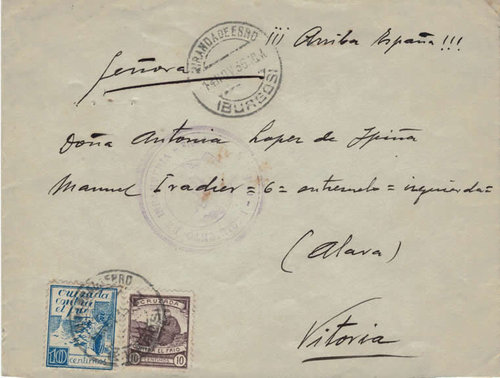 ¡¡¡ Arriba España!!!
Señora
MIRANDA DE EBRO
(BURGOS)
Doña Antonia Lopez de Ipiña
Manuel Iradier = 6 = entresuelo = izquierda =
(Alava)
Vitoria
cruzada
contra
el frio
10
centimos
CRUZADA
EL FRIO
10 CENTIMOS 10